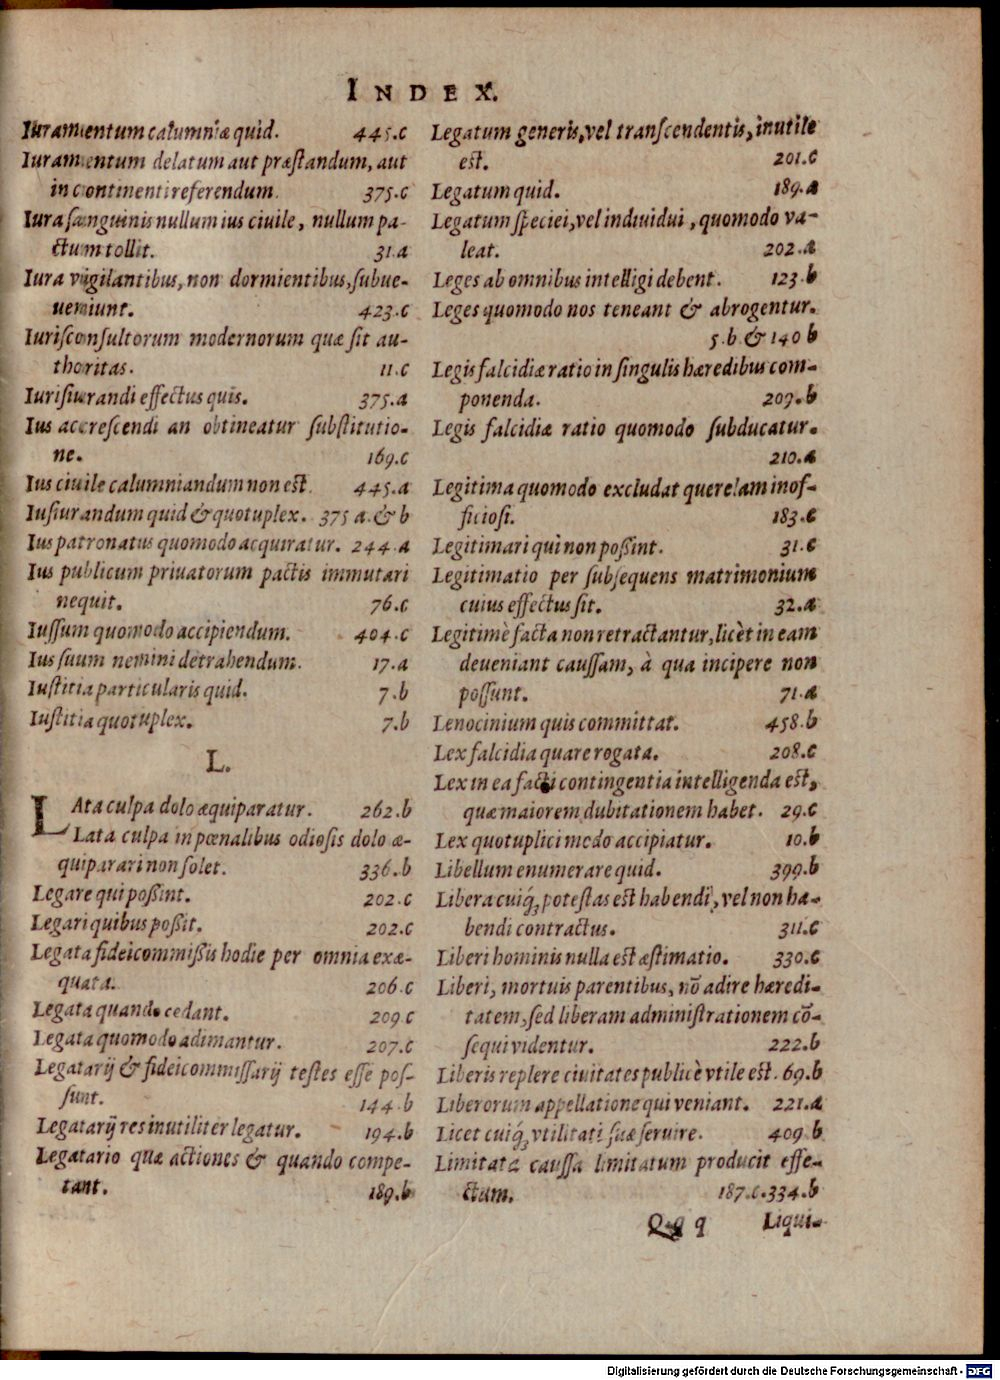 INDEX.
Iuramentum calumniæ quid. 445.c
Iuramentum delatum aut præstandum, aut
in continenti referendum. 375.c
Iura sanguinis nullum ius ciuile, nullum pa-
ctum tollit. 31.a
Iura vigilantibus, non dormientibus, subue-
ueniunt. 423.c
Iurisconsultorum modernorum quæ sit au-
thoritas. 11.c
Iurisiurandi effectus quis. 375.a
Ius accrescendi an obtineatur substitutio-
ne. 169.c
Ius ciuile calumniandum non est. 445.a
Iusiurandum quid & quotuplex. 375 a. & b
Ius patronatus quomodo acquiratur. 244.a
Ius publicum priuatorum pactis immutari
nequit. 76.c
Iussum quomodo accipiendum. 404.c
Ius suum nemini detrahendum. 17.a
Iustitia particularis quid. 7.b
Iustitia quotuplex. 7.b
L.
LAta culpa dolo æquiparatur. 262.b
Lata culpa in pœnalibus odiosis dolo æ-
quiparari non solet. 336.b
Legare qui poßint. 202.c
Legari quibus poßit. 202.c
Legata fideicommißis hodie per omnia exæ-
quata. 206.c
Legata quando cedant. 209.c
Legata quomodo adimantur. 207.c
Legatarij & fideicommissarij testes esse pos-
sunt. 144.b
Legatarij res inutiliter legatur. 194.b
Legatario quæ actiones & quando compe-
tant. 189.b
Legatum generis, vel transcendentis, inutile
est. 201.c
Legatum quid. 189.a
Legatum speciei, vel indiuidui, quomodo va-
leat. 202.a
Leges ab omnibus intelligi debent. 123.b
Leges quomodo nos teneant & abrogentur.
5.b. & 140 b
Legis falcidiæ ratio in singulis hæredibus com-
ponenda. 209.b
Legis falcidiæ ratio quomodo subducatur.
210.a
Legitima quomodo excludat querelam inof-
ficiosi. 183.c
Legitimari qui non poßint. 31.c
Legitimatio per subsequens matrimonium
cuius effectus sit. 32.a
Legitimè facta non retractantur, licèt in eam
deueniant caussam, à qua incipere non
possunt. 71.a
Lenocinium quis committat. 458.b
Lex falcidia quare rogata. 208.c
Lex in ea facti contingentia intelligenda est,
quæ maiorem dubitationem habet. 29.c
Lex quotuplici modo accipiatur. 10.b
Libellum enumerare quid. 399.b
Libera cuiq́; potestas est habendi, vel non ha-
bendi contractus. 311.c
Liberi hominis nulla est æstimatio. 330.c
Liberi, mortuis parentibus, nō adire hæredi-
tatem, sed liberam administrationem cō-
sequi videntur. 222.b
Liberis replere ciuitates publicè vtile est. 69.b
Liberorum appellatione qui veniant. 221.a
Licet cuiq́; vtilitati suæ seruire. 409.b
Limitata caussa limitatum producit effe-
ctum. 187.c.334.b
Qqq Liqui-
Digitalisierung gefördert durch die Deutsche Forschungsgemeinschaft - DFG